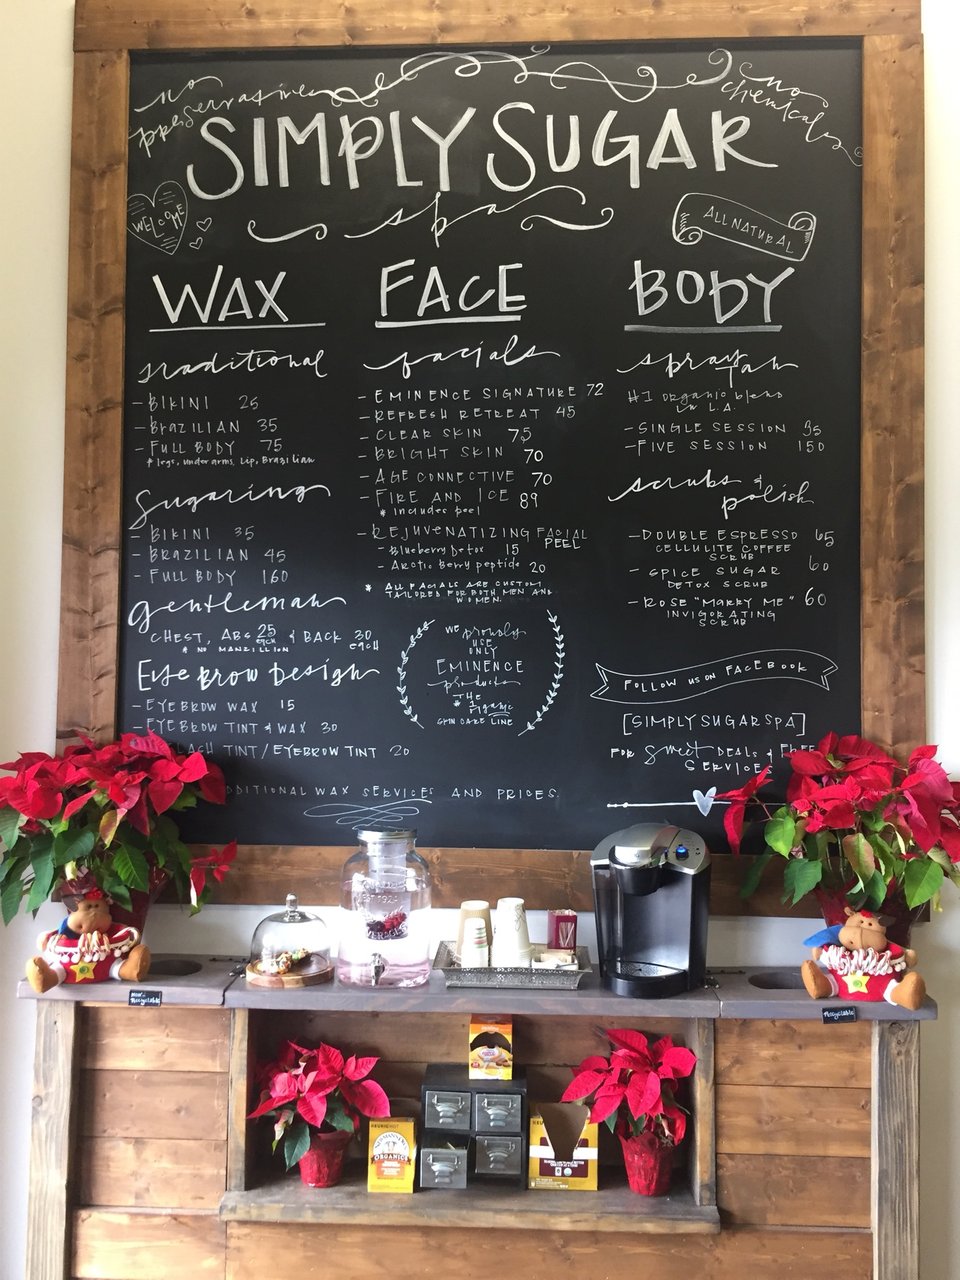 no preservatives
no chemicals
SIMPLY SUGAR
spa
WELCOME
ALL NATURAL
WAX
traditional
- BIKINI 25
- BRAZILIAN 35
- FULL BODY 75
* legs, underarms, Lip, Brazilian
Sugaring
- BIKINI 35
- BRAZILIAN 45
- FULL BODY 160
gentleman
CHEST, ABS 25 each & BACK 30 each
* NO MANZILLION
EYE BROW DESIGN
- EYEBROW WAX 15
- EYEBROW TINT & WAX 30
LASH TINT/EYEBROW TINT 20
DDITIONAL WAX SERVICES AND PRICES.
FACE
facials
- EMINENCE SIGNATURE 72
- REFRESH RETREAT 45
- CLEAR SKIN 75
- BRIGHT SKIN 70
- AGE CONNECTIVE 70
- FIRE AND ICE 89
* includes peel
- REJUVENATIZING FACIAL PEEL
- Blueberry Detox 15
- Arctic Berry peptide 20
* ALL FACIALS ARE CUSTOM
TAILORED FOR BOTH MEN AND
WOMEN.
WE proudly
USE
ONLY
EMINENCE
products
THE
* 1 organic
SKIN CARE LINE
BODY
spray tan
#1 organic blend
in L.A.
- SINGLE SESSION 35
- FIVE SESSION 150
scrubs &
polish
- DOUBLE ESPRESSO 65
CELLULITE COFFEE
SCRUB
- SPICE SUGAR 60
DETOX SCRUB
- ROSE "MARRY ME" 60
INVIGORATING
SCRUB
FOLLOW US ON FACEBOOK
[SIMPLYSUGARSPA]
FOR sweet DEALS & FREE
SERVICES
Non-
Recyclable
Recyclable
ORGANIC